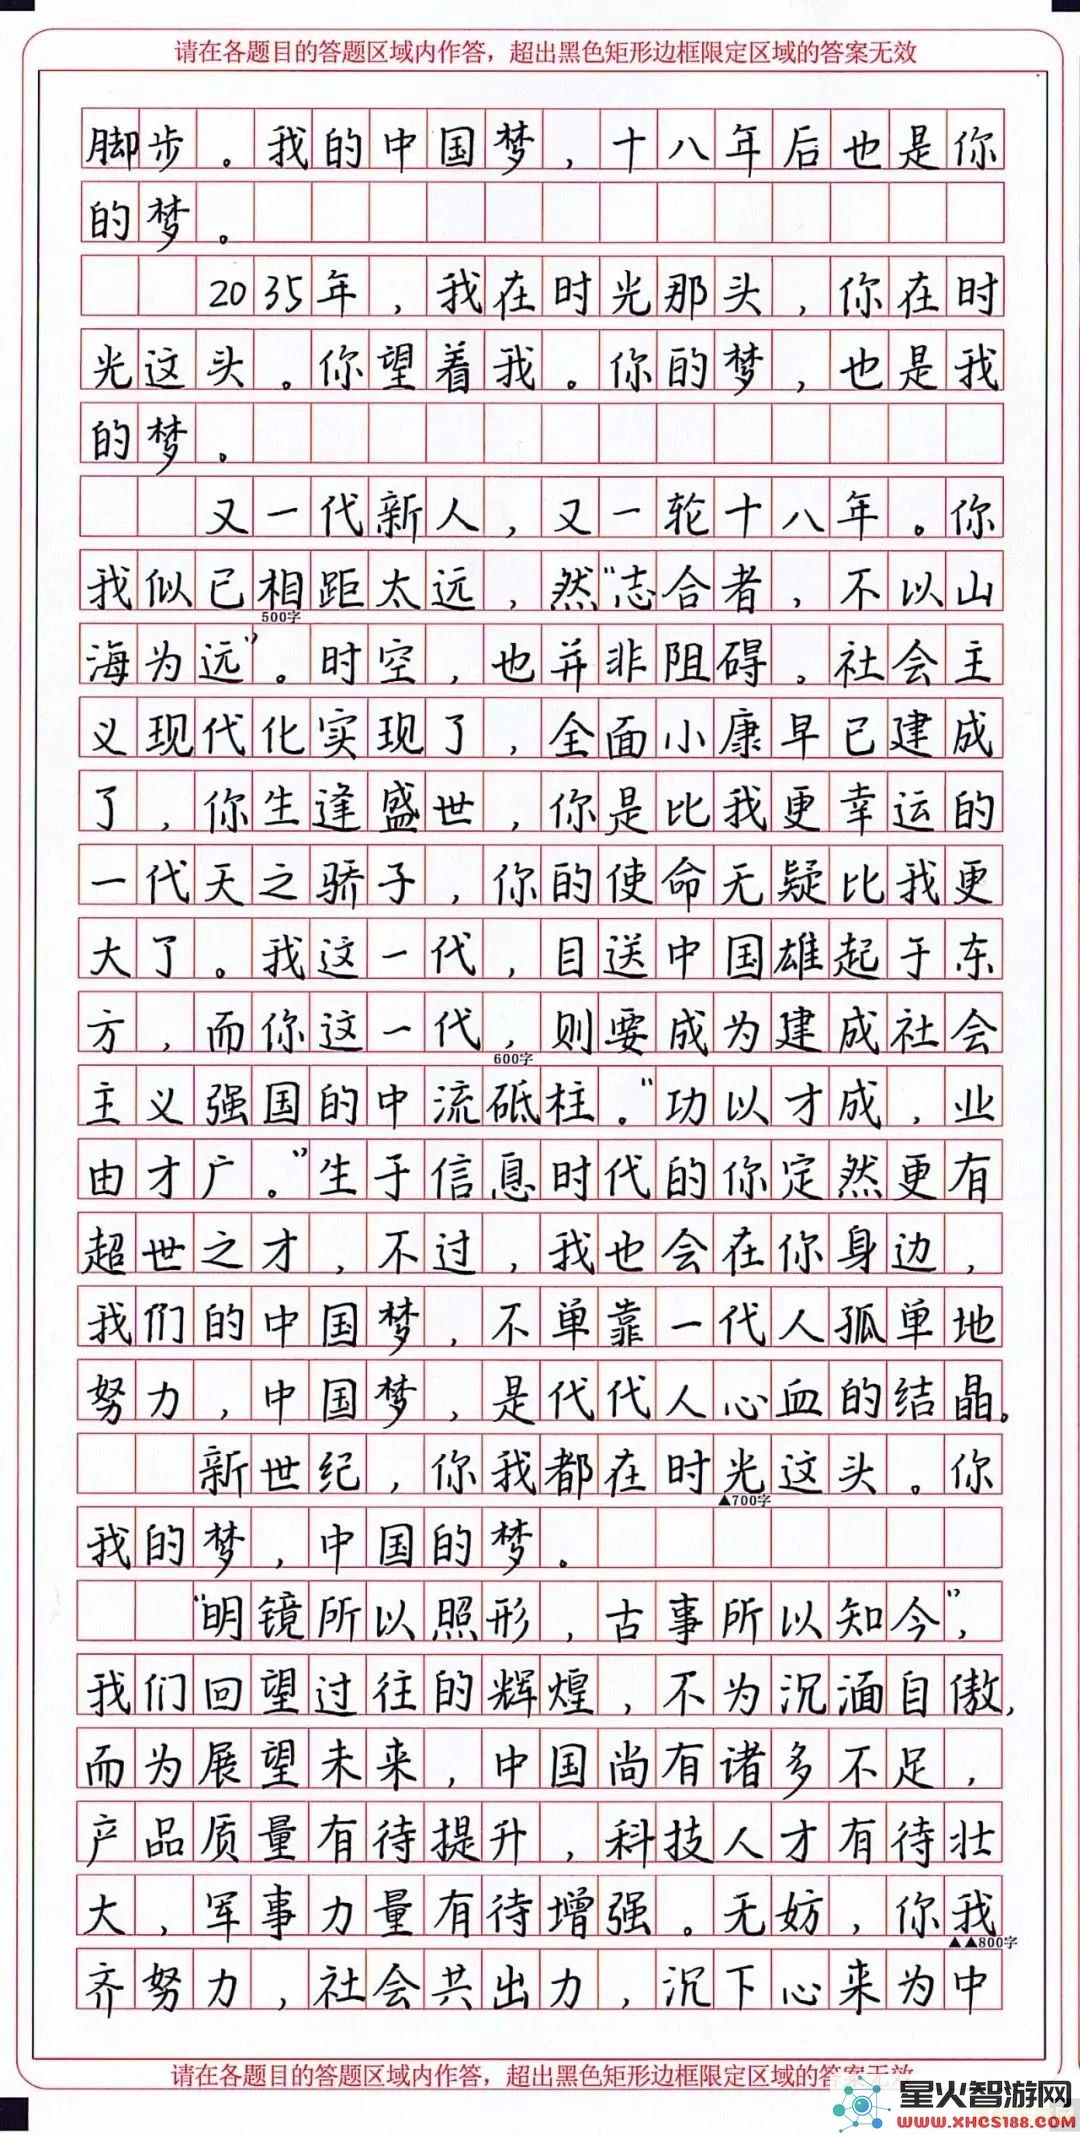 请在各题目的答题区域内作答，超出黑色矩形边框限定区域的答案无效
脚步。我的中国梦，十八年后也是你
的梦。
2035年，我在时光那头，你在时
光这头。你望着我。你的梦，也是我
的梦。
又一代新人，又一轮十八年。你
我似已相距太远，然“志合者，不以山
500字
海为远”。时空，也并非阻碍。社会主
义现代化实现了，全面小康早已建成
了，你生逢盛世，你是比我更幸运的
一代天之骄子，你的使命无疑比我更
大了。我这一代，目送中国雄起于东
方，而你这一代，则要成为建成社会
600字
主义强国的中流砥柱。“功以才成，业
由才广。”生于信息时代的你定然更有
超世之才，不过，我也会在你身边，
我们的中国梦，不单靠一代人孤单地
努力，中国梦，是代代人心血的结晶。
新世纪，你我都在时光这头。你
▲700字
我的梦，中国的梦。
“明镜所以照形，古事所以知今”，
我们回望过往的辉煌，不为沉湎自傲，
而为展望未来，中国尚有诸多不足，
产品质量有待提升，科技人才有待壮
大，军事力量有待增强。无妨，你我
▲▲800字
齐努力，社会共出力，沉下心来为中
请在各题目的答题区域内作答，超出黑色矩形边框限定区域的答案无效
星火智游网
WWW.XHCS188.COM